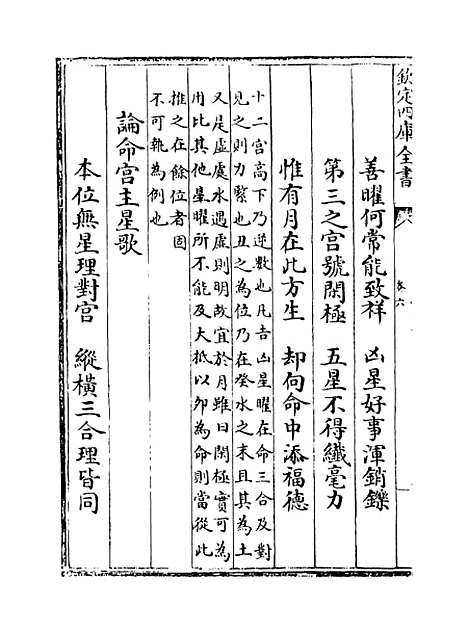 欽定四庫全書
卷六
善曜何常能致祥　凶星好事渾銷鑠
第三之宮號閑極　五星不得纖毫力
惟有月在此方生　却向命中添福德
十二宮高下乃逆數也凡吉凶星曜在命三合及對
見之則力緊也丑之為位乃在癸水之末且其為土
又是虛處水遇虛則明故宜於月雖曰閑極實可為
用比其他星曜所不能及大抵以卯為命則當從此
推之在餘位者固
不可執為例也
論命宮主星歌
本位無星理對宮　縱橫三合理皆同